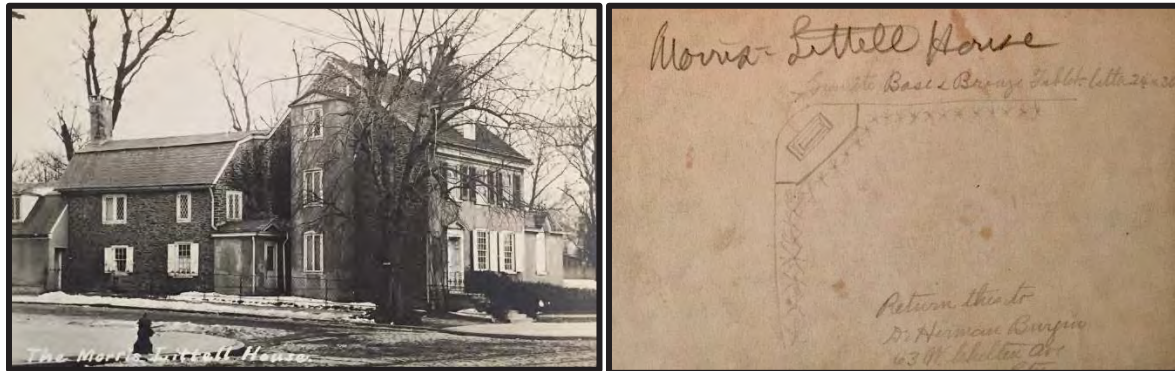 The Morris Littell House.
Morris-Littell House
Granite Base & Bronze Tablet letter
Return this to
Dr Herman Burgin
63 W. Chelten Ave